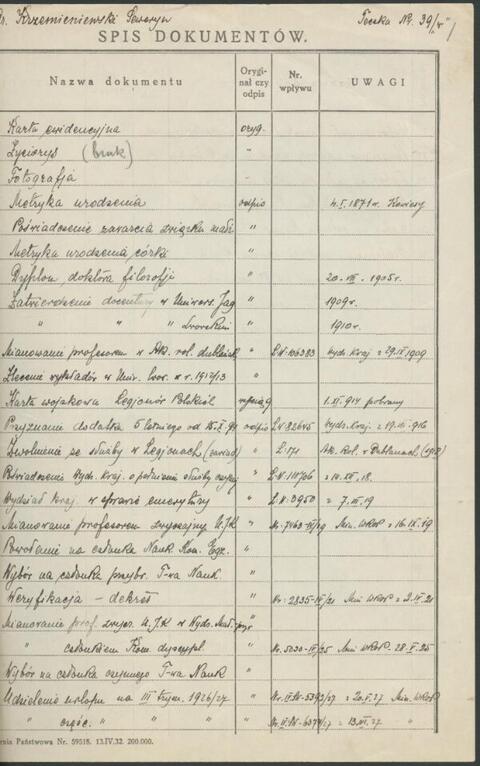 Dr. Krzemieniewski Seweryn Teczka Nr. 39/
SPIS DOKUMENTÓW.
Nazwa dokumentu Orygi-nał czy odpis Nr. wpływu UWAGI
Karta ewidencyjna oryg.
Życiorys (brak) "
Fotografja "
Metryka urodzenia odpis 4.I.1871 r.
Poświadczenie zawarcia związku małż. "
Metryka urodzenia córki "
Dyplom doktora filozofji " 1905 r.
Zatwierdzenie docentury w Uniwers. Jag " 1909 r.
" " " Lwowskim " 1910 r.
Mianowanie profesorem w Ak. rol. dublańsk " L.W. 106383 Wydz. Kraj = 29.IX 1909
Zlecenie wykładów w Uniw. Lwow. w r. 1912/13 "
Karta wojskowa Legjonów Polskich 1.XI.914 pobrany
Przyznanie dodatku 5 letniego od odpis L.W. 82645 Wydz. Kraj. = 19.VI.916
Zwolnienie ze służby w Legjonach " L. 171 Ak. Rol. w Dublanach (1918)
Poświadczenie Wydz. Kraj. o pełnieniu służby " L.W. 111706
Wydział Kraj. w sprawie emerytury " L.W. 3950 = 7.III.19
Mianowanie profesorem zwyczajny U.J.K " Nr. 7463-IV/19 Min. WRiOP = 16.IX.19
Powołanie na członka Nauk. Kom. Egz. "
Wybór na członka przybr. T-wa Nauk. "
Weryfikacja – dekret " Nr. 2835-IV/21 Min WRiOP =
Mianowanie prof. zwycz. U.J.K w Wydz. Mat.-przyr "
" członkiem Kom. dyscypl. " Nr. 5030-IV/25 Min WRiOP. 28.V.25
Wybór na członka czynnego T-wa Nauk "
Udzielenie urlopu na III trym. 1926/27 " = 20.V.27 Min. WRiOP
" częśc. " "
Państwowa Nr. 59518. 13.IV.32. 200.000.